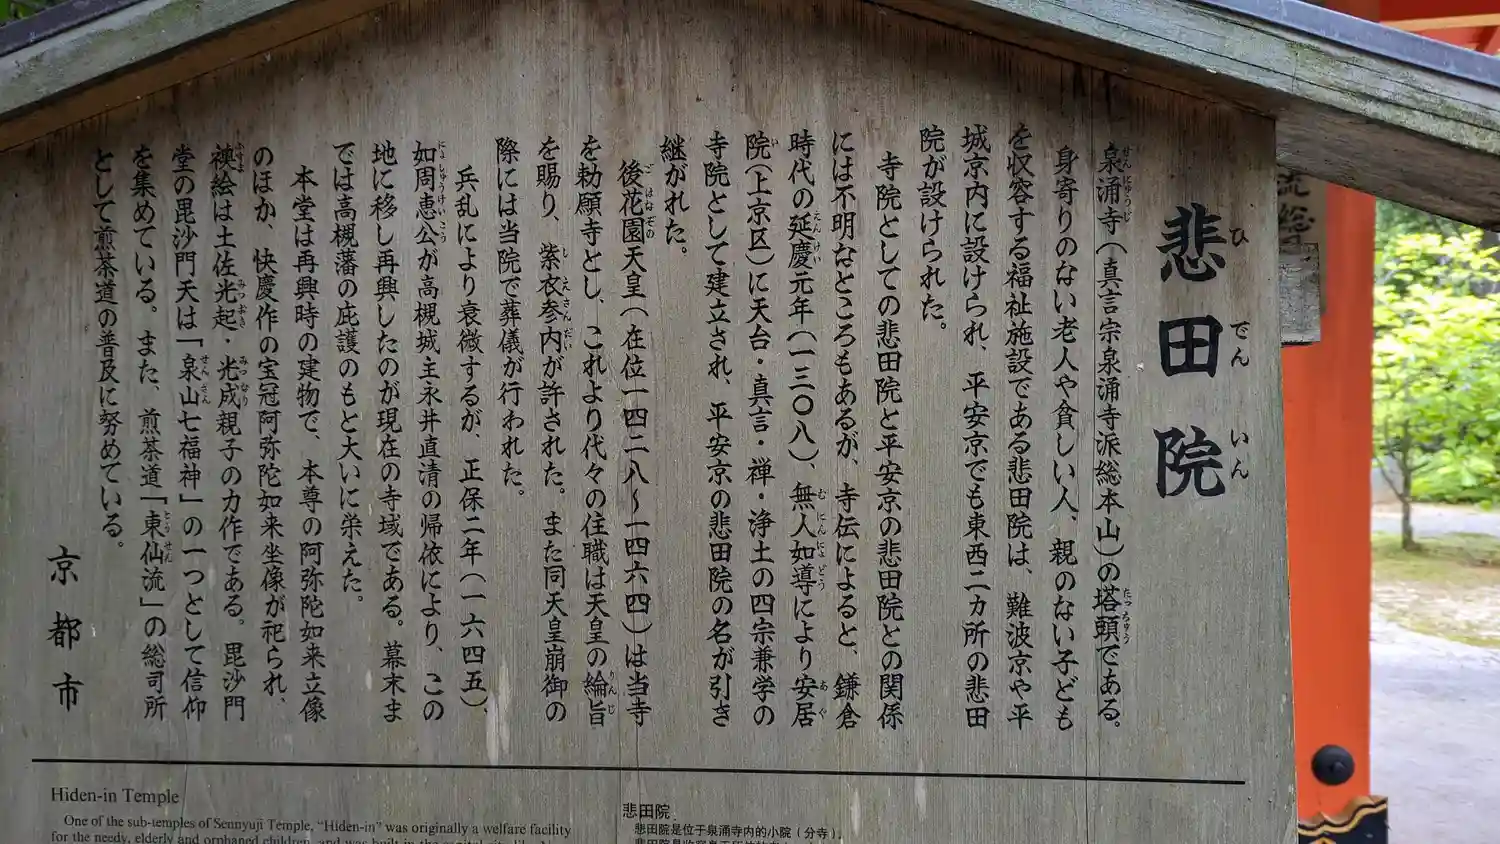 悲田院
泉涌寺（真言宗泉涌寺派総本山）の塔頭である。
身寄りのない老人や貧しい人、親のない子ども
を収容する福祉施設である悲田院は、難波京や平
城京内に設けられ、平安京でも東西二カ所の悲田
院が設けられた。
寺院としての悲田院と平安京の悲田院との関係
には不明なところもあるが、寺伝によると、鎌倉
時代の延慶元年（一三〇八）、無人如導により安居
院（上京区）に天台・真言・禅・浄土の四宗兼学の
寺院として建立され、平安京の悲田院の名が引き
継がれた。
後花園天皇（在位一四二八～一四六四）は当寺
を勅願寺とし、これより代々の住職は天皇の綸旨
を賜り、紫衣参内が許された。また同天皇崩御の
際には当院で葬儀が行われた。
兵乱により衰微するが、正保二年（一六四五）、
如周恵公が高槻城主永井直清の帰依により、この
地に移し再興したのが現在の寺域である。幕末ま
では高槻藩の庇護のもと大いに栄えた。
本堂は再興時の建物で、本尊の阿弥陀如来立像
のほか、快慶作の宝冠阿弥陀如来坐像が祀られ、
襖絵は土佐光起・光成親子の力作である。毘沙門
堂の毘沙門天は「泉山七福神」の一つとして信仰
を集めている。また、煎茶道「東仙流」の総司所
として煎茶道の普及に努めている。
京都市
Hiden-in Temple
One of the sub-temples of Sennyuji Temple, “Hiden-in” was originally a welfare facility
for the needy, elderly and orphaned children, and was built in the capital city like
悲田院
悲田院是位于泉涌寺内的小院（分寺）。